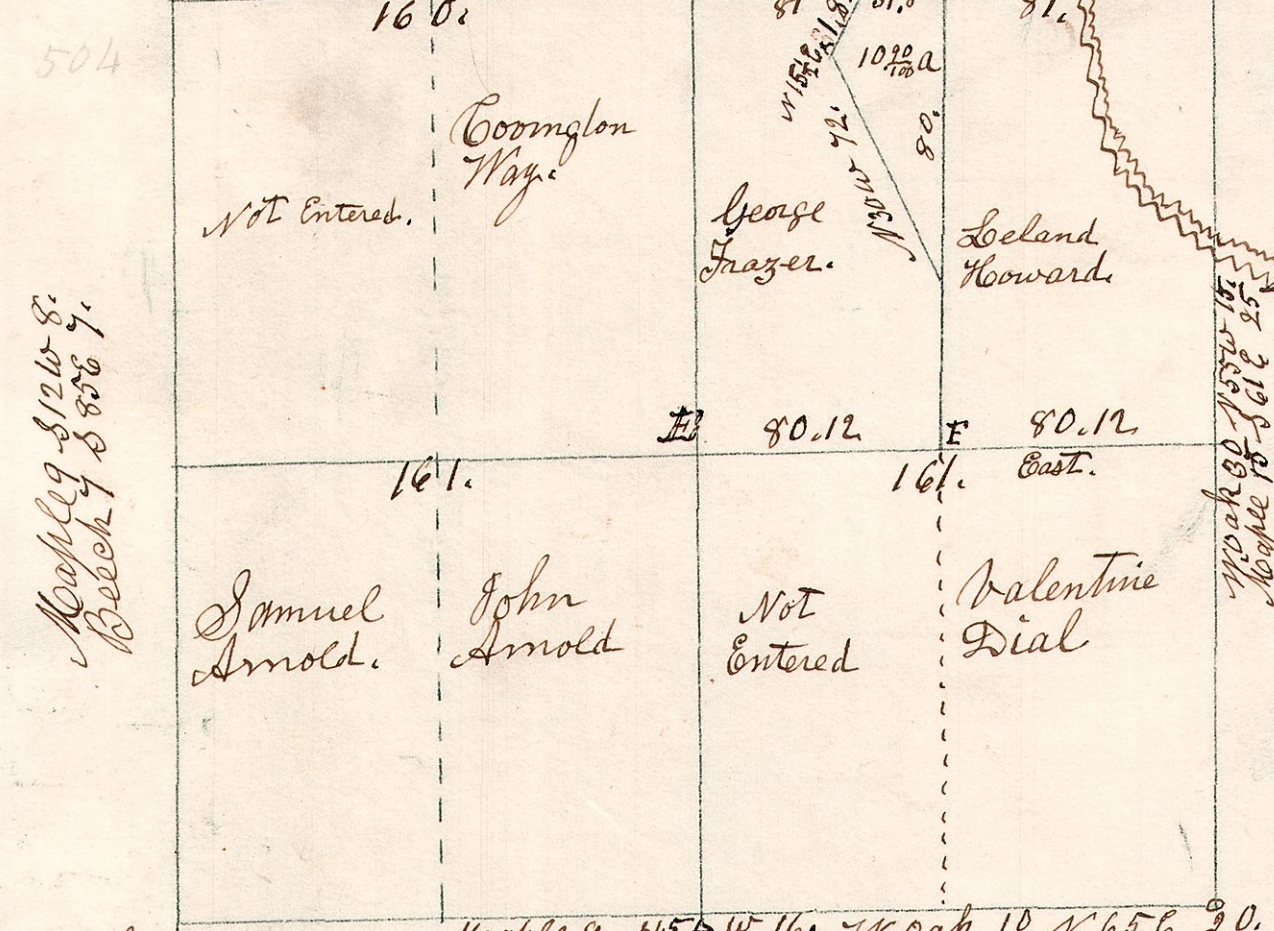 160.
81
81.
504
N15½E
10 90/100 a
Covington
Way.
N30W 72.
80.
Not Entered.
George
Frazer.
Leland
Howard.
Maple 9 S12W 8.
Beech 7 S85E 7.
E
80.12
F
80.12
East.
161.
161.
W.Oak 30 N55W 15.
Maple 15 S61E 25
Samuel
Arnold.
John
Arnold
Not
Entered
Valentine
Dial
W 16. W Oak 10 N65E 20.